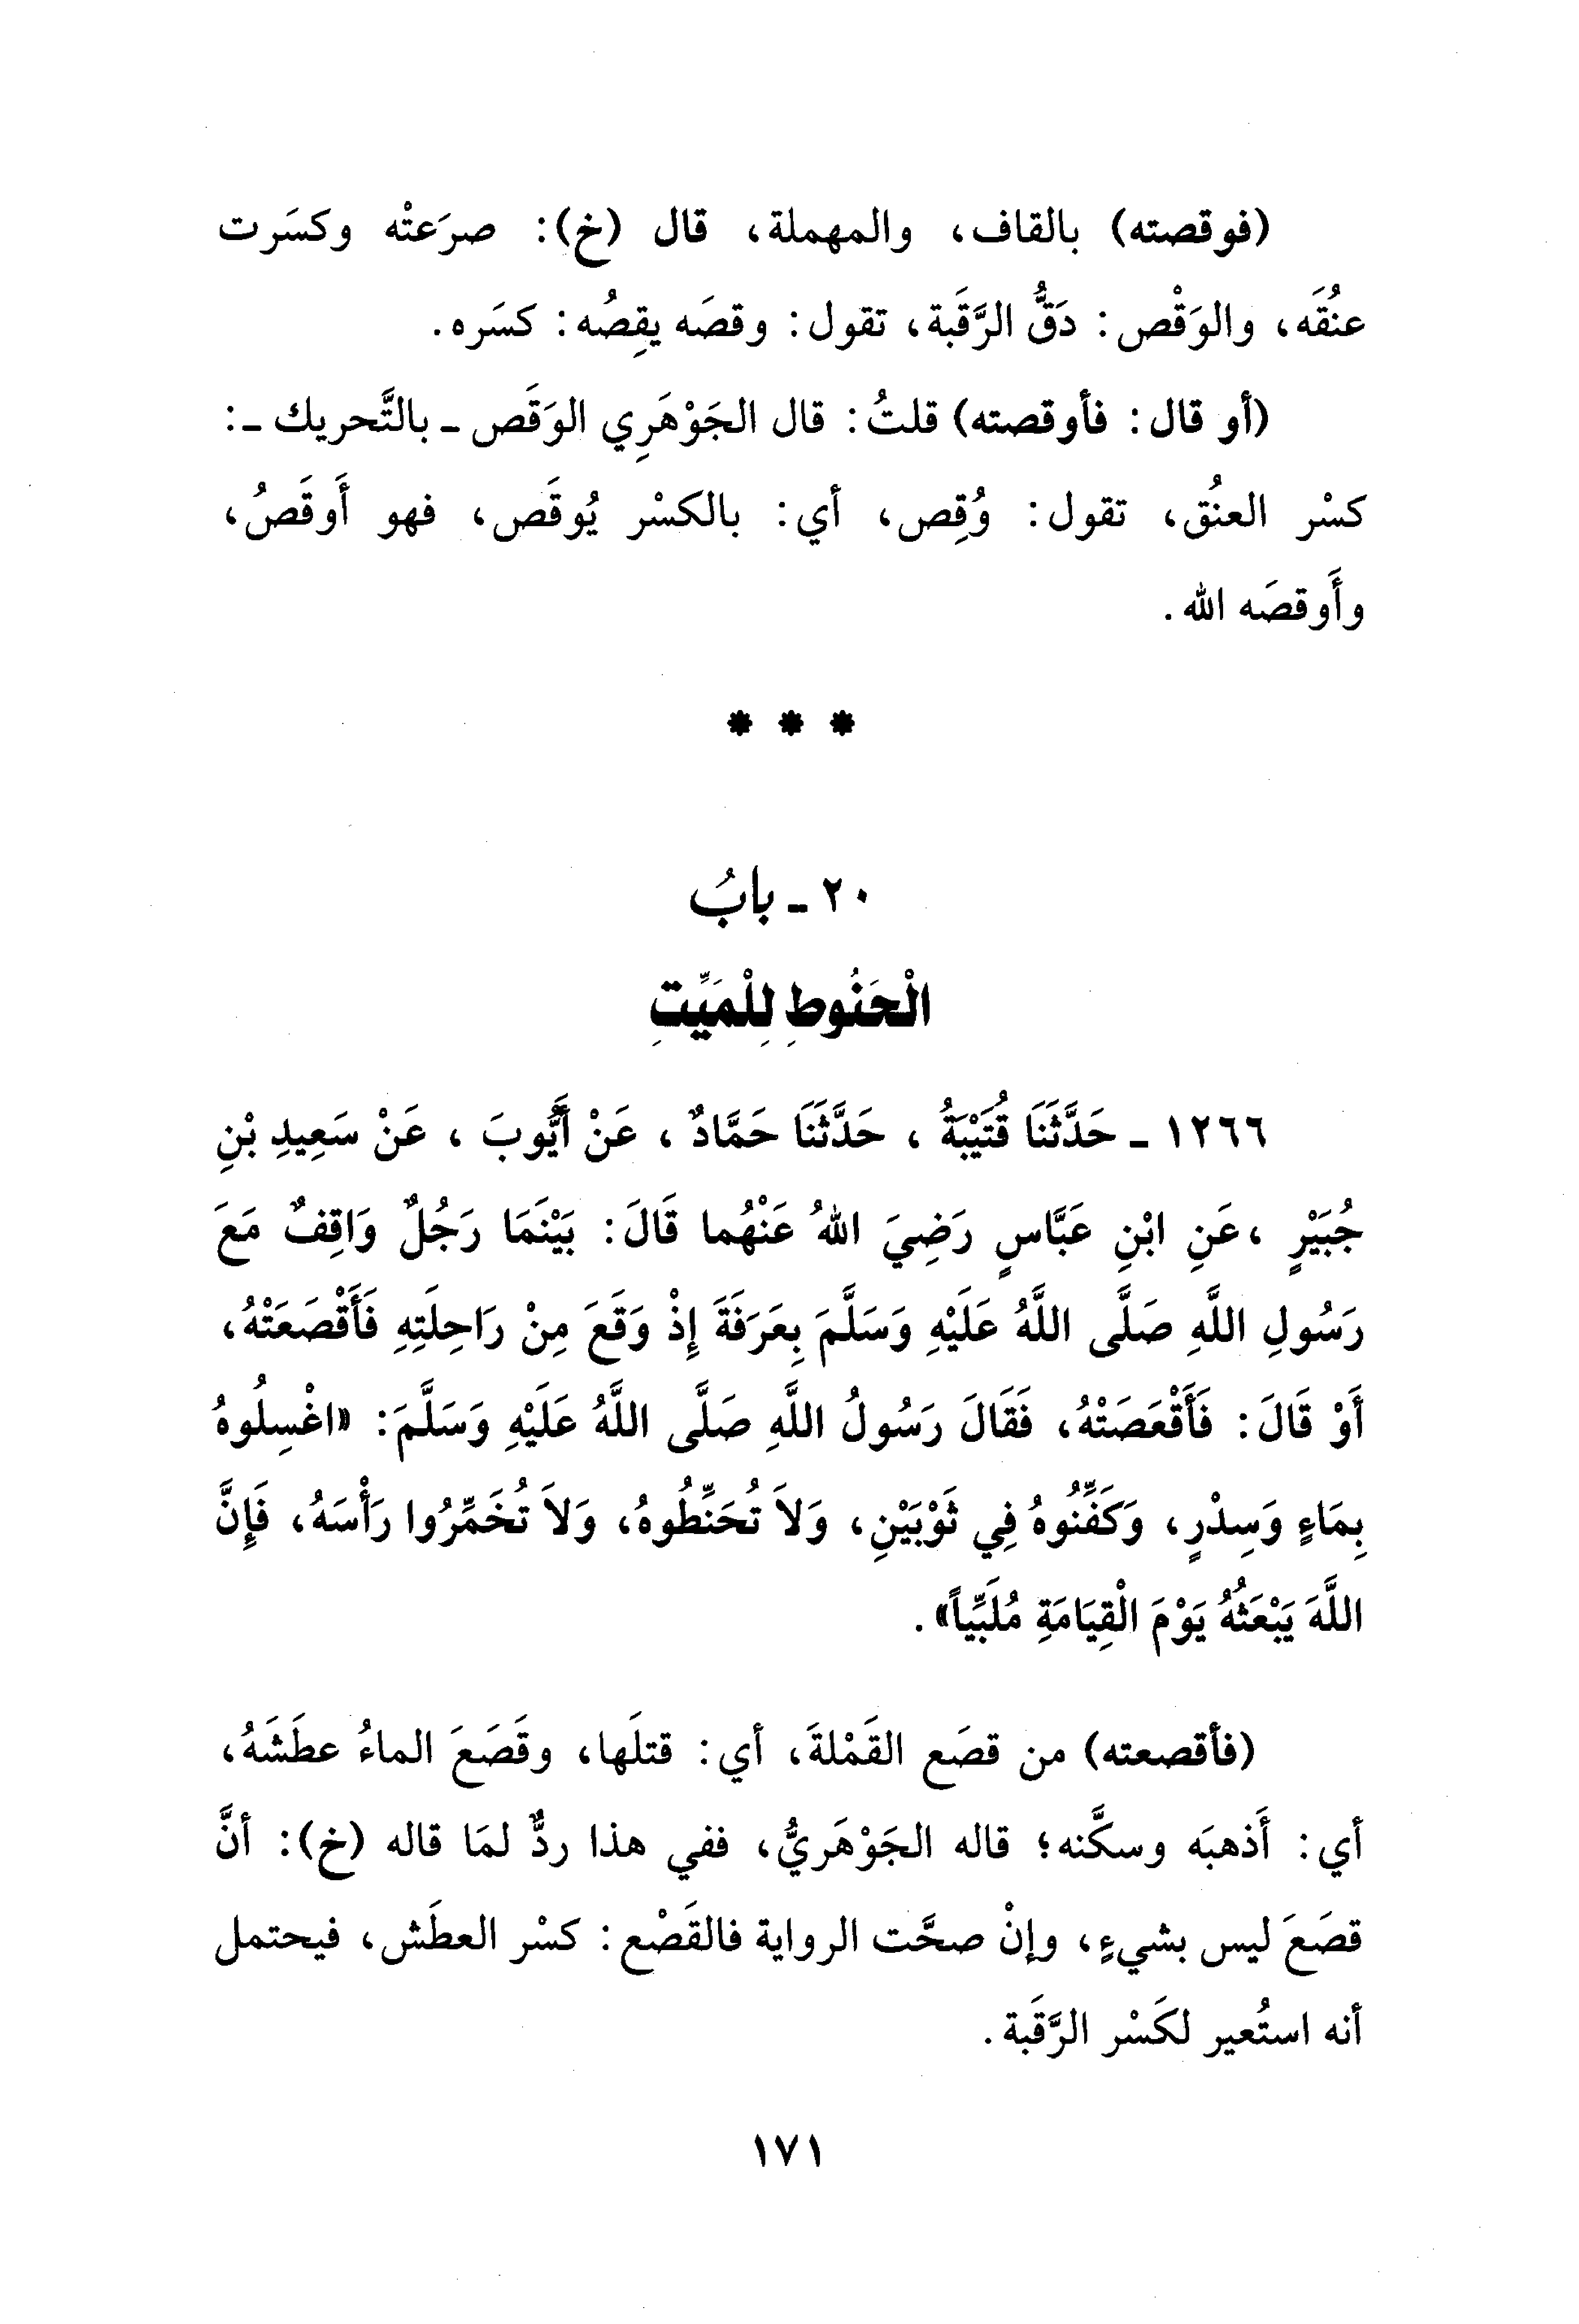 (فوقصته) بالقاف، والمهملة، قال (خ): صرَعتْه وكسَرت
عنُقَه، والوَقْص: دَقُّ الرَّقَبة، تقول: وقصَه يقِصُه: كسَره.
(أو قال: فأوقصته) قلتُ: قال الجَوْهَرِي الوَقَص ـ بالتَّحريك ـ:
كسْر العنُق، تقول: وُقِص، أي: بالكسْر يُوقَص، فهو أَوقَصُ،
وأَوقصَه الله.
* * *
٢٠ ـ بابُ
الْحَنُوطِ لِلْمَيِّتِ
١٢٦٦ ـ حَدَّثَنَا قُتَيْبَةُ ، حَدَّثَنَا حَمَّادٌ ، عَنْ أَيُّوبَ ، عَنْ سَعِيدِ بْنِ
جُبَيْرٍ ،عَنِ ابْنِ عَبَّاسٍ رَضِيَ اللهُ عَنْهُما قَالَ: بَيْنَمَا رَجُلٌ وَاقِفٌ مَعَ
رَسُولِ اللَّهِ صَلَّى اللَّهُ عَلَيْهِ وَسَلَّمَ بِعَرَفَةَ إِذْ وَقَعَ مِنْ رَاحِلَتِهِ فَأَقْصَعَتْهُ،
أَوْ قَالَ: فَأَقْعَصَتْهُ، فَقَالَ رَسُولُ اللَّهِ صَلَّى اللَّهُ عَلَيْهِ وَسَلَّمَ: «اغْسِلُوهُ
بِمَاءٍ وَسِدْرٍ، وَكَفِّنُوهُ فِي ثَوْبَيْنِ، وَلاَ تُحَنِّطُوهُ، وَلاَ تُخَمِّرُوا رَأْسَهُ، فَإِنَّ
اللَّهَ يَبْعَثُهُ يَوْمَ الْقِيَامَةِ مُلَبِّياً».
(فأقصعته) من قصَع القَمْلةَ، أي: قتلَها، وقَصَعَ الماءُ عطَشَهُ،
أي: أَذهبَه وسكَّنه؛ قاله الجَوْهَريُّ، ففي هذا ردٌّ لمَا قاله (خ): أنَّ
قصَعَ ليس بشيءٍ، وإنْ صحَّت الرواية فالقَصْع: كسْر العطَش، فيحتمل
أنه استُعير لكَسْر الرَّقَبة.
١٧١